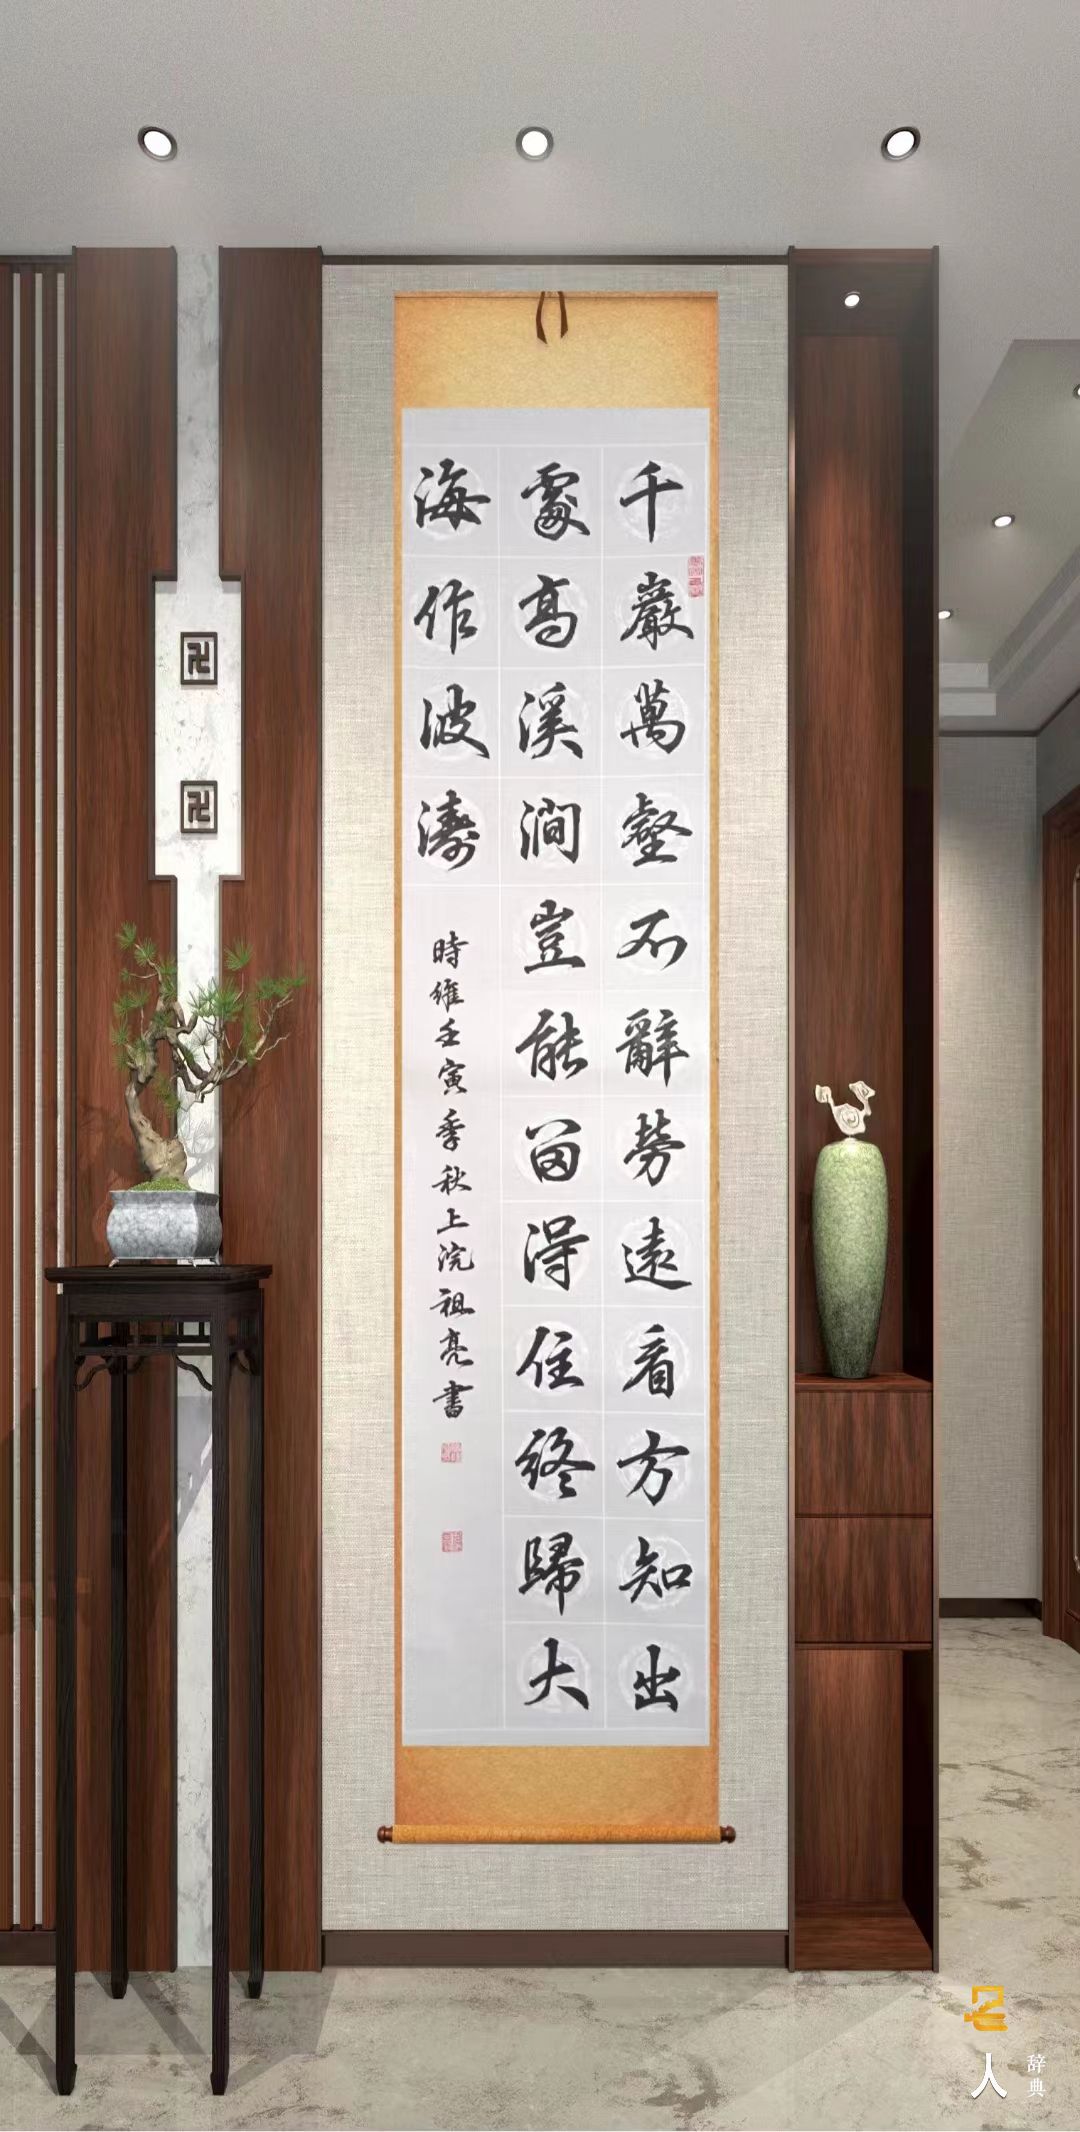 千巖萬壑不辭勞遠看方知出
處高溪澗豈能留得住終歸大
海作波濤
時維壬寅季秋上浣祖亮書
名人
辞典